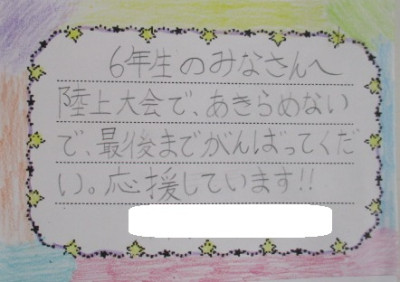 6年生のみなさんへ
陸上大会で、あきらめない
で、最後までがんばってくだ
い。応援しています!!